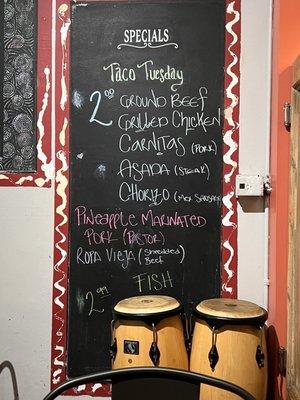 SPECIALS
Taco Tuesday
2.00 GROUND BEEF
GRILLED CHICKEN
CARNITAS (PORK)
ASADA (STEAK)
CHORIZO (MEX SAUSAGE)
PINEAPPLE MARINATED
PORK (PASTOR)
ROPA VIEJA (Shredded
Beef)
FISH
2.99